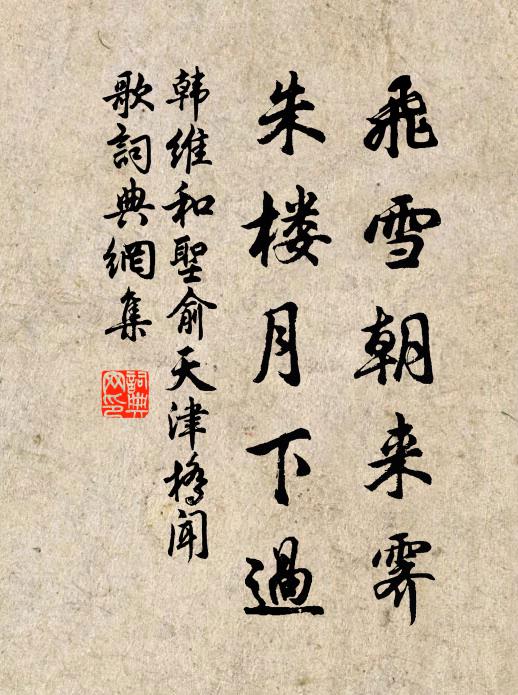 飛雪朝来霽
朱楼月下過
韩维和聖俞天津橋闻
歌詞典網集
詞典
网印